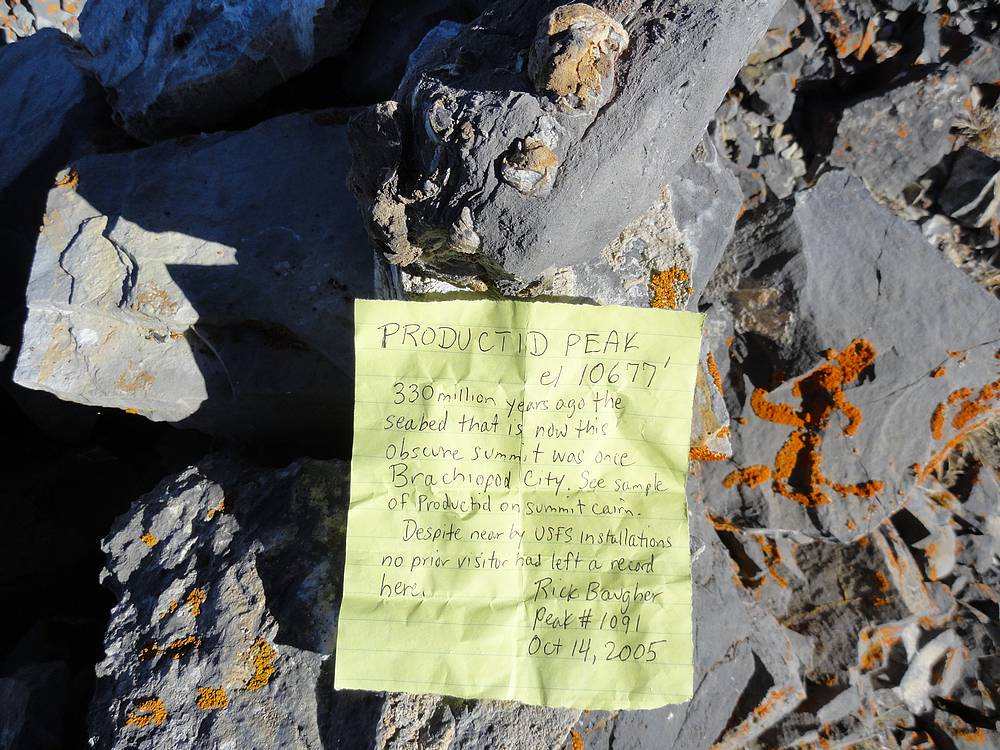 PRODUCTID PEAK
el 10677'
330 million years ago the
seabed that is now this
obscure summit was once
Brachiopod City. See sample
of Productid on summit cairn.
Despite near by USFS installations
no prior visitor had left a record
here. Rick Baugher
Peak # 1091
Oct 14, 2005